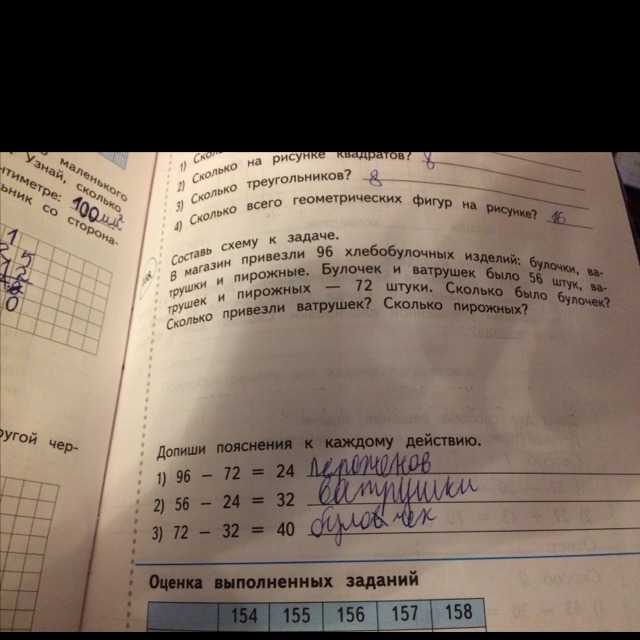 маленького
Узнай, сколько
нтиметре: 100 мм²
ьник со сторона-
ругой чер-
1)
2) Сколько на рисунке квадратов? 8
3) Сколько треугольников? 8
4) Сколько всего геометрических фигур на рисунке? 16
Составь схему к задаче.
В магазин привезли 96 хлебобулочных изделий: булочки, ва-
трушки и пирожные. Булочек и ватрушек было 56 штук, ва-
трушек и пирожных — 72 штуки. Сколько было булочек?
Сколько привезли ватрушек? Сколько пирожных?
Допиши пояснения к каждому действию.
1) 96 − 72 = 24
2) 56 − 24 = 32 ватрушки
3) 72 − 32 = 40 булочек
Оценка выполненных заданий
154 155 156 157 158